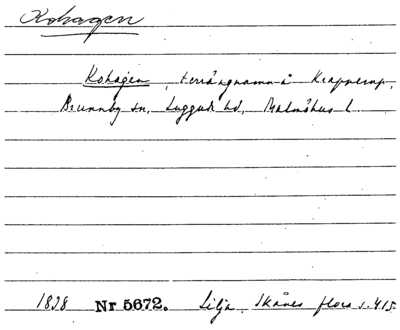 Kohagen
Kohagen, terrängnamn å Krapperup,
Brunnby sn, Luggude hd, Malmöhus l.
1838 Nr 5672. Lilja, Skånes flora s. 415